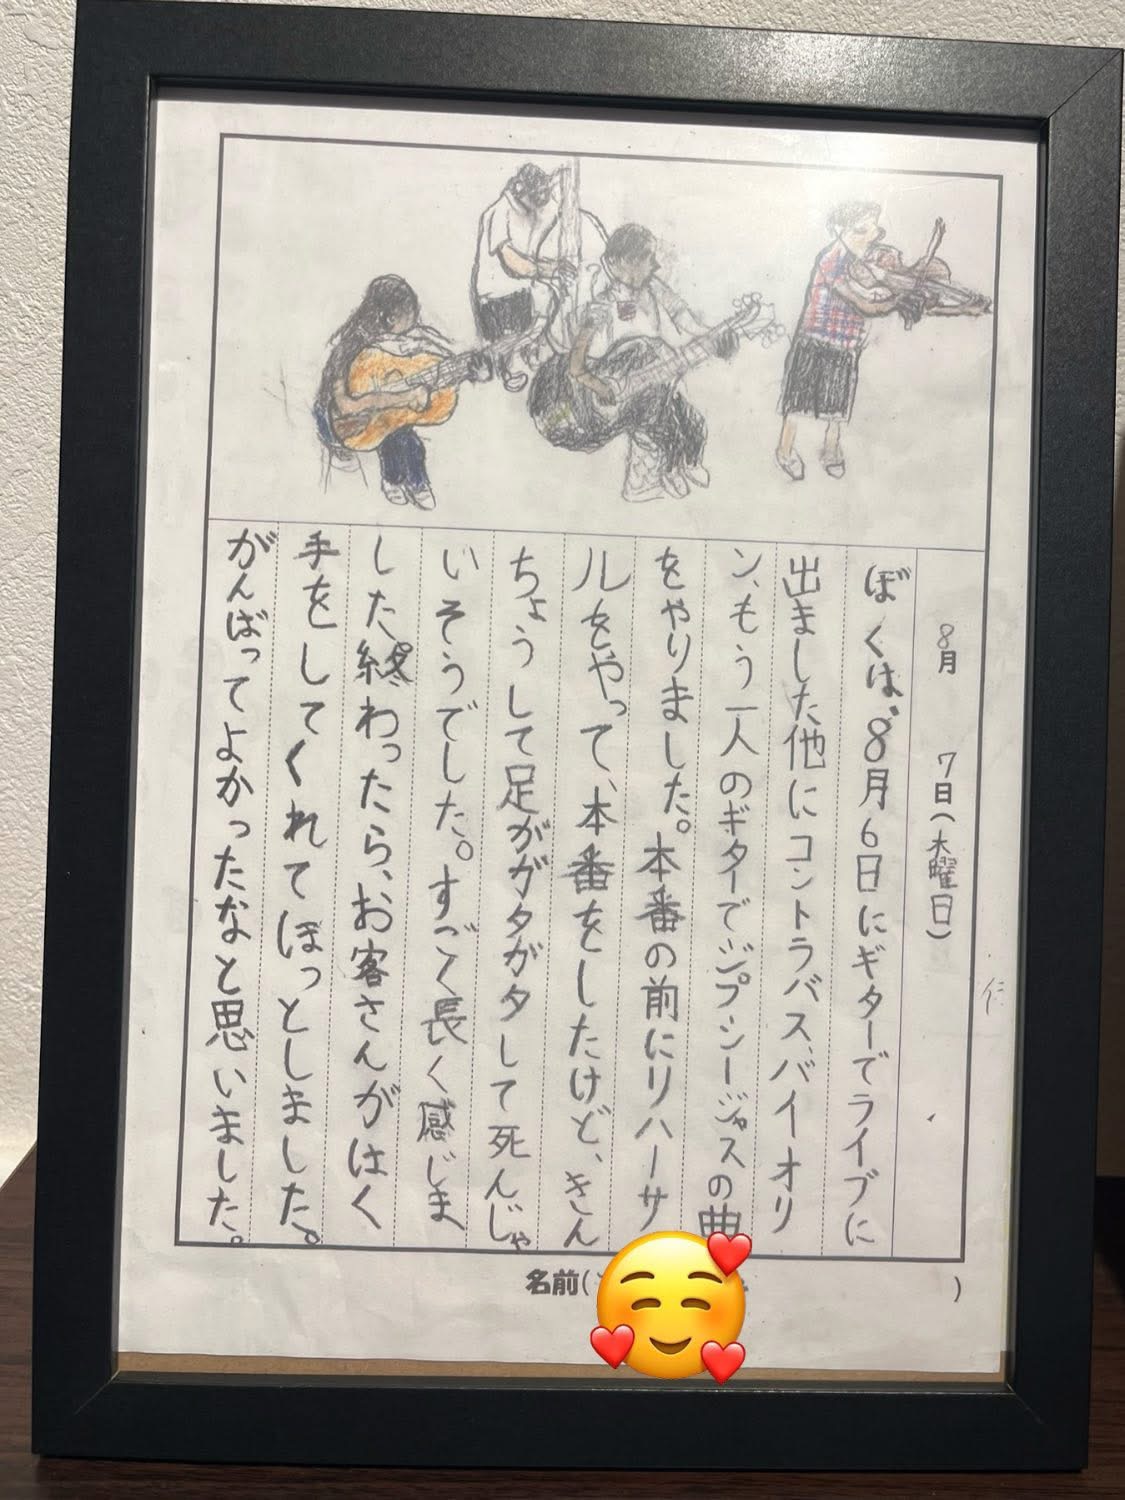 8月 7日(木曜日)
ぼくは、8月6日にギターでライブに
出ました他にコントラバス、バイオリ
ン、もう一人のギターでジプシージャスの曲
をやりました。本番の前にリハーサ
ルをやって、本番をしたけど、きん
ちょうして足ががガタガタして死んじゃ
いそうでした。すごく長く感じま
した終わったら、お客さんがはく
手をしてくれてほっとしました。
がんばってよかったなと思いました。
名前( )